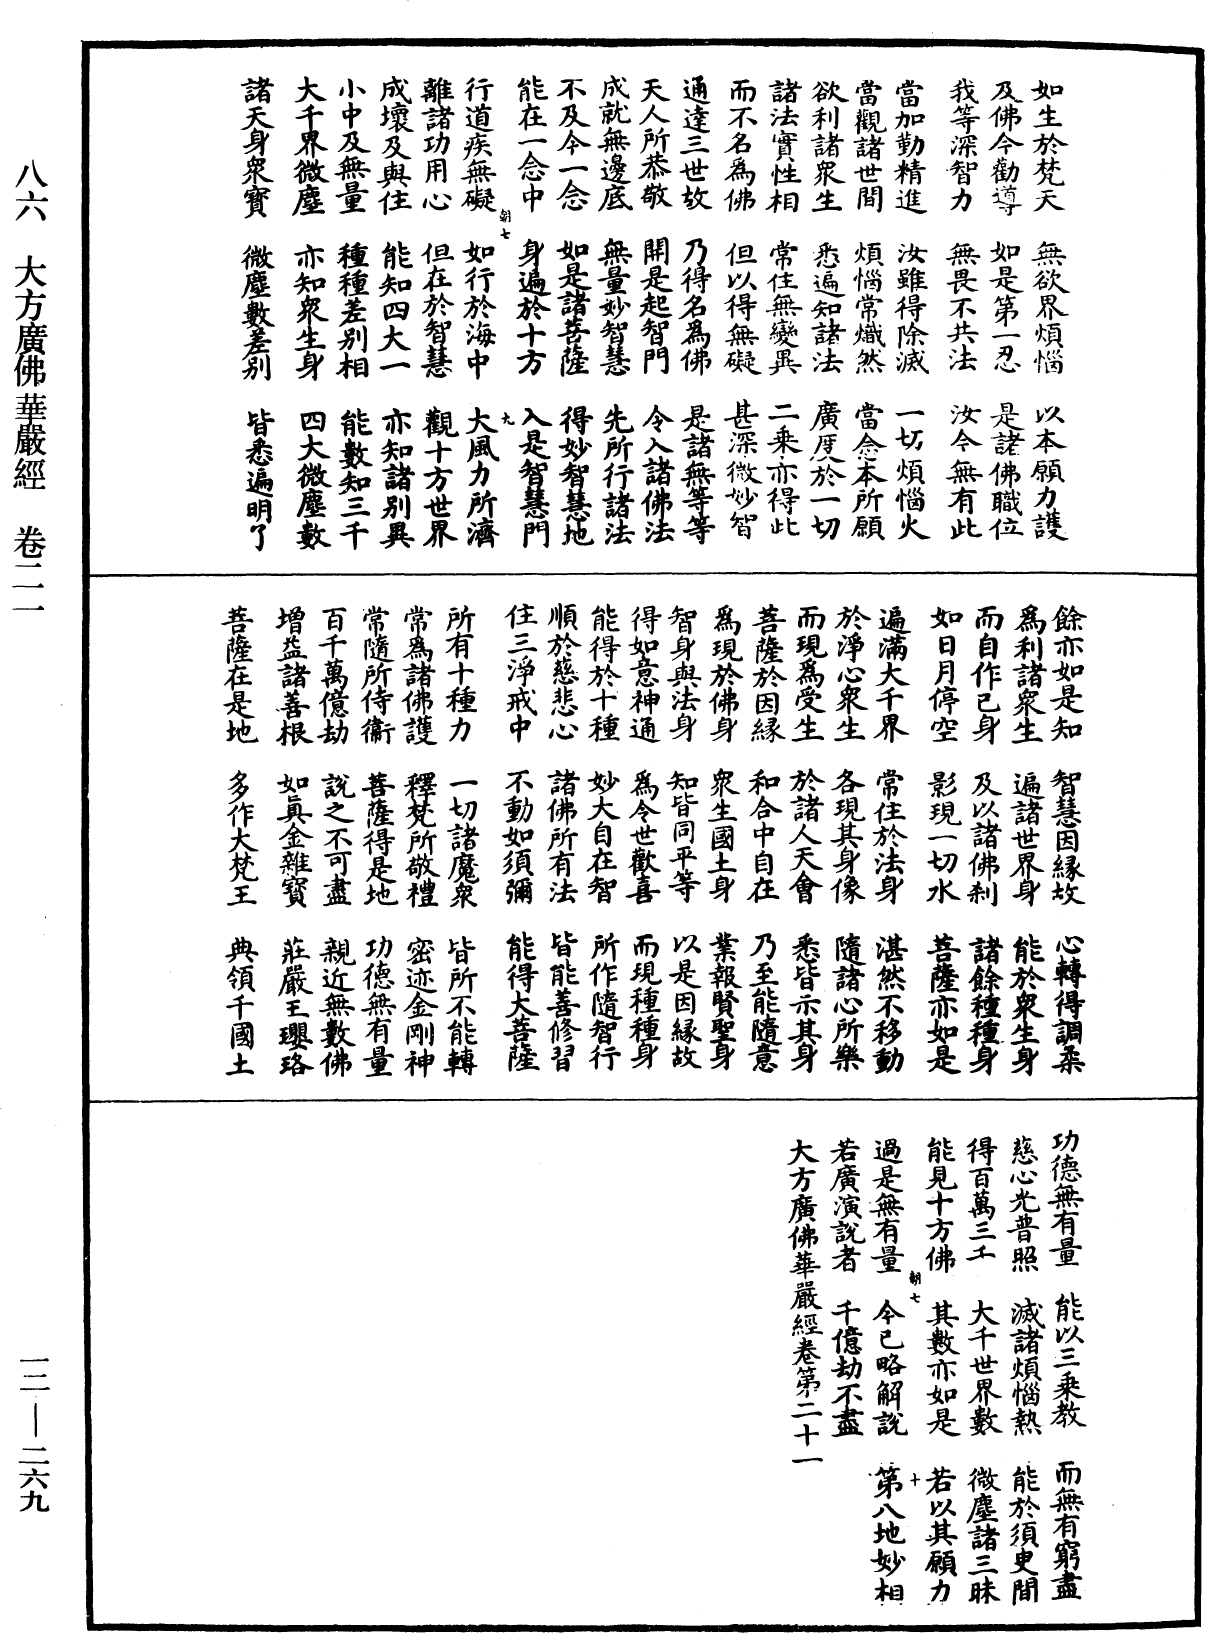 如生於梵天　無欲界煩惱　以本願力護
及佛今勸導　如是第一忍　是諸佛職位
我等深智力　無畏不共法　汝今無有此
當加勤精進　汝雖得除滅　一切煩惱火
當觀諸世間　煩惱常熾然　當念本所願
欲利諸衆生　悉遍知諸法　廣度於一切
諸法實性相　常住無變異　二乘亦得此
而不名爲佛　但以得無礙　甚深微妙智
通達三世故　乃得名爲佛　是諸無等等
天人所恭敬　開是起智門　令入諸佛法
成就無邊底　無量妙智慧　先所行諸法
不及今一念　如是諸菩薩　得妙智慧地
能在一念中　身遍於十方　入是智慧門
朝七　九
行道疾無礙　如行於海中　大風力所濟
離諸功用心　但在於智慧　觀十方世界
成壞及與住　能知四大一　亦知諸別異
小中及無量　種種差別相　能數知三千
大千界微塵　亦知衆生身　四大微塵數
諸天身衆寶　微塵數差別　皆悉遍明了
餘亦如是知　智慧因緣故　心轉得調柔
爲利諸衆生　遍諸世界身　能於衆生身
而自作已身　及以諸佛刹　諸餘種種身
如日月停空　影現一切水　菩薩亦如是
遍滿大千界　常住於法身　湛然不移動
於淨心衆生　各現其身像　隨諸心所樂
而現爲受生　於諸人天會　悉皆示其身
菩薩於因緣　和合中自在　乃至能隨意
爲現於佛身　衆生國土身　業報賢聖身
智身與法身　知皆同平等　以是因緣故
得如意神通　爲令世歡喜　而現種種身
能得於十種　妙大自在智　所作隨智行
順於慈悲心　諸佛所有法　皆能善修習
住三淨戒中　不動如須彌　能得大菩薩
所有十種力　一切諸魔衆　皆所不能轉
常爲諸佛護　釋梵所敬禮　密迹金剛神
常隨所侍衞　菩薩得是地　功德無有量
百千萬億劫　說之不可盡　親近無數佛
增益諸善根　如眞金雜寶　莊嚴王瓔珞
菩薩在是地　多作大梵王　典領千國土
功德無有量　能以三乘教　而無有窮盡
慈心光普照　滅諸煩惱熱　能於須臾間
得百萬三千　大千世界數　微塵諸三昧
能見十方佛　其數亦如是　若以其願力
朝七　十
過是無有量　今已略解說　第八地妙相
若廣演說者　千億劫不盡
大方廣佛華嚴經卷第二十一
八六　大方廣佛華嚴經　卷二一
一二—二六九